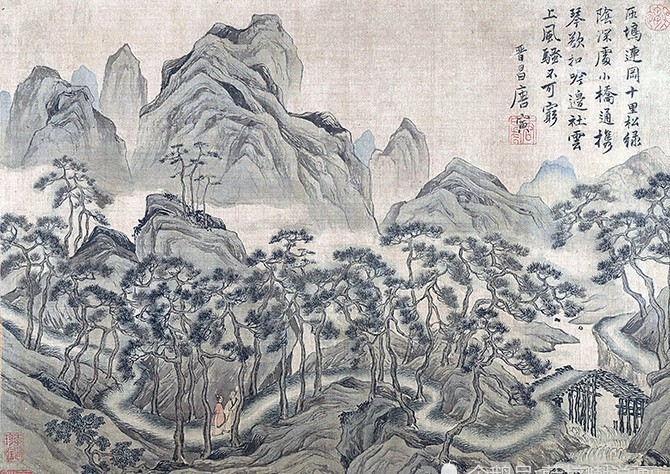 塢連岡十里松緑
陰深處小橋通携
琴欲扣邊社雲
上風騷不可窮
晉昌唐寅